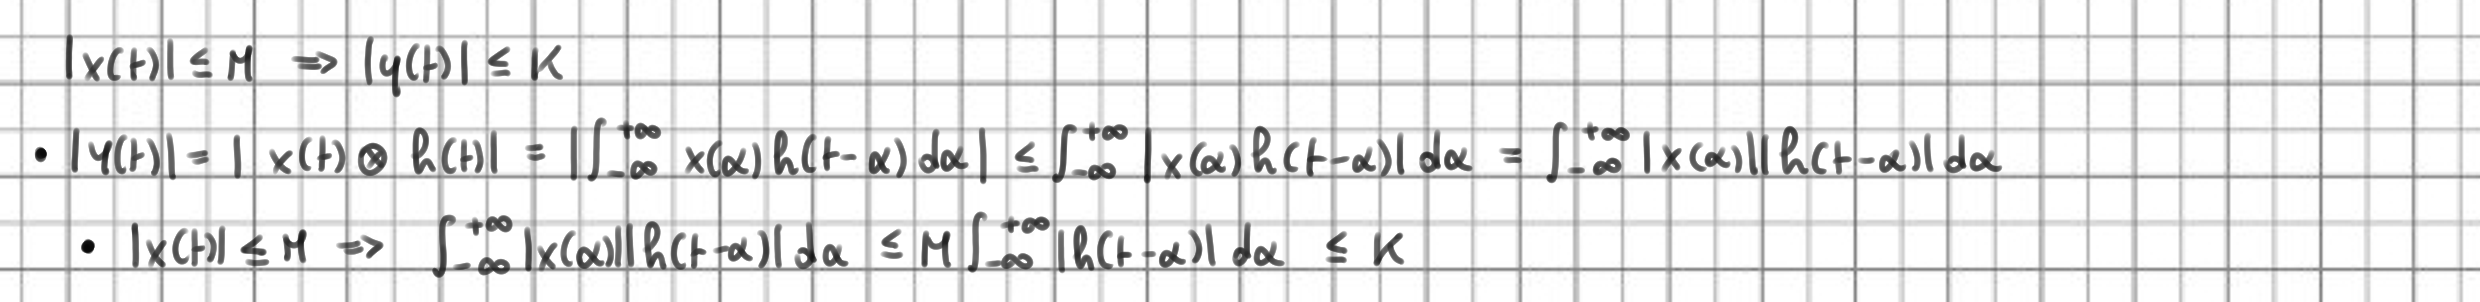 |x(t)| ≤ M ⇒ |y(t)| ≤ K
• |y(t)| = | x(t) ⊗ h(t)| = |∫_{-∞}^{+∞} x(α) h(t-α) dα| ≤ ∫_{-∞}^{+∞} |x(α) h(t-α)| dα = ∫_{-∞}^{+∞} |x(α)||h(t-α)| dα
• |x(t)| ≤ M ⇒ ∫_{-∞}^{+∞} |x(α)||h(t-α)| dα ≤ M ∫_{-∞}^{+∞} |h(t-α)| dα ≤ K